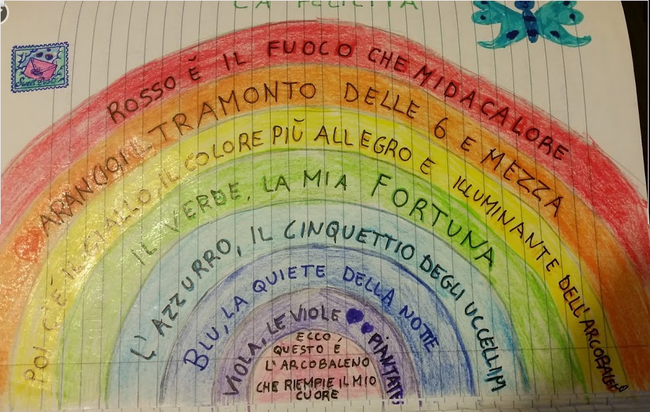 LA FELICITÀ
ROSSO È IL FUOCO CHE MI DA CALORE
ARANCIO IL TRAMONTO DELLE 6 E MEZZA
POI C'È IL GIALLO, IL COLORE PIÙ ALLEGRO E ILLUMINANTE DELL'ARCOBALENO
IL VERDE, LA MIA FORTUNA
L'AZZURRO, IL CINQUETTIO DEGLI UCCELLINI
BLU, LA QUIETE DELLA NOTTE
VIOLA, LE VIOLE PIANTATE
ECCO,
QUESTO È
L'ARCOBALENO
CHE RIEMPIE IL MIO
CUORE